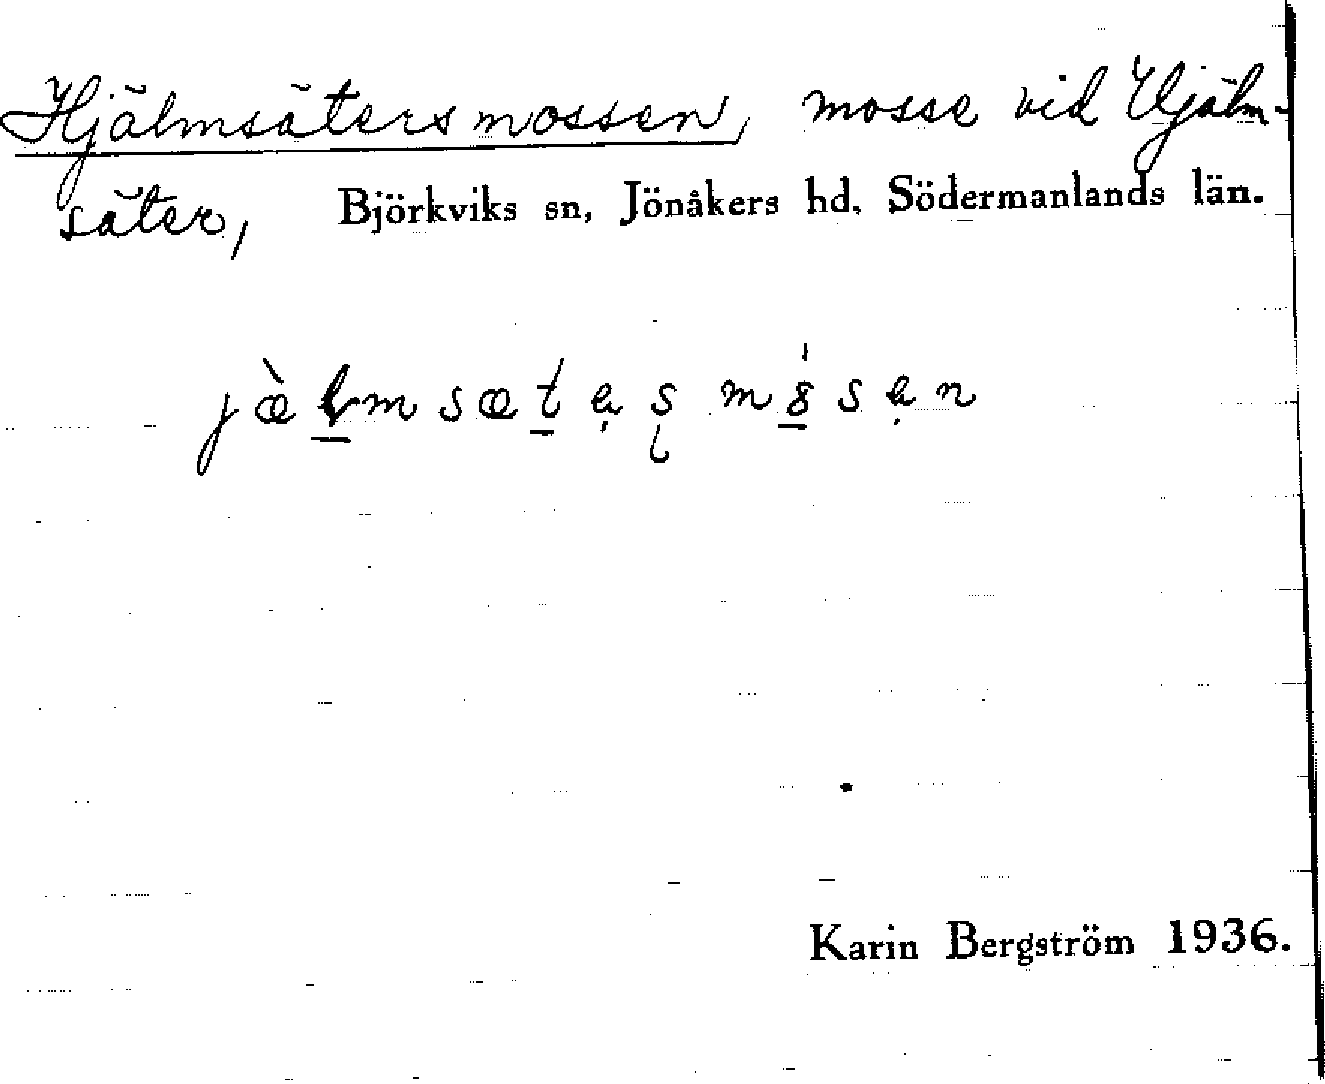 Hjälmsätersmossen, mosse vid Hjälm-
säter, Björkviks sn, Jönåkers hd. Södermanlands län.
Karin Bergström 1936.